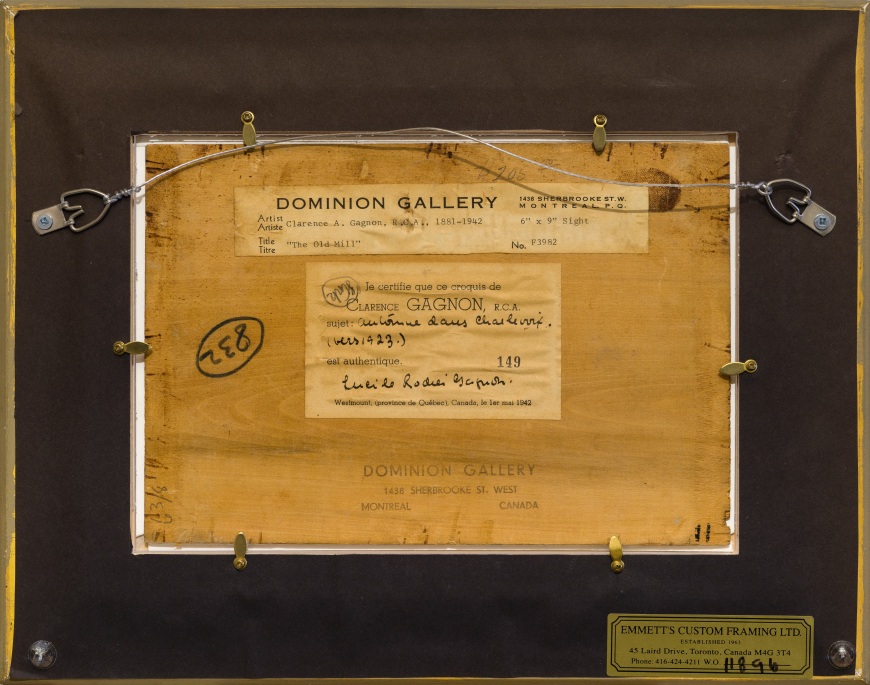 206
DOMINION GALLERY
1438 SHERBROOKE ST. W.
MONTREAL, P. Q.
Artist
Artiste Clarence A. Gagnon, R.C.A., 1881-1942
6" x 9" Sight
Title
Titre "The Old Mill"
No. F3982
Je certifie que ce croquis de
CLARENCE GAGNON, R.C.A.
sujet: Automne dans Charlevoix.
(vers 1923.)
est authentique. 149
Lucile Rodier Gagnon.
Westmount, (province de Québec), Canada, le 1er mai 1942
832
DOMINION GALLERY
1438 SHERBROOKE ST. WEST
MONTREAL CANADA
EMMETT'S CUSTOM FRAMING LTD.
ESTABLISHED 1963
45 Laird Drive, Toronto, Canada M4G 3T4
Phone: 416-424-4211 W.O. 11896